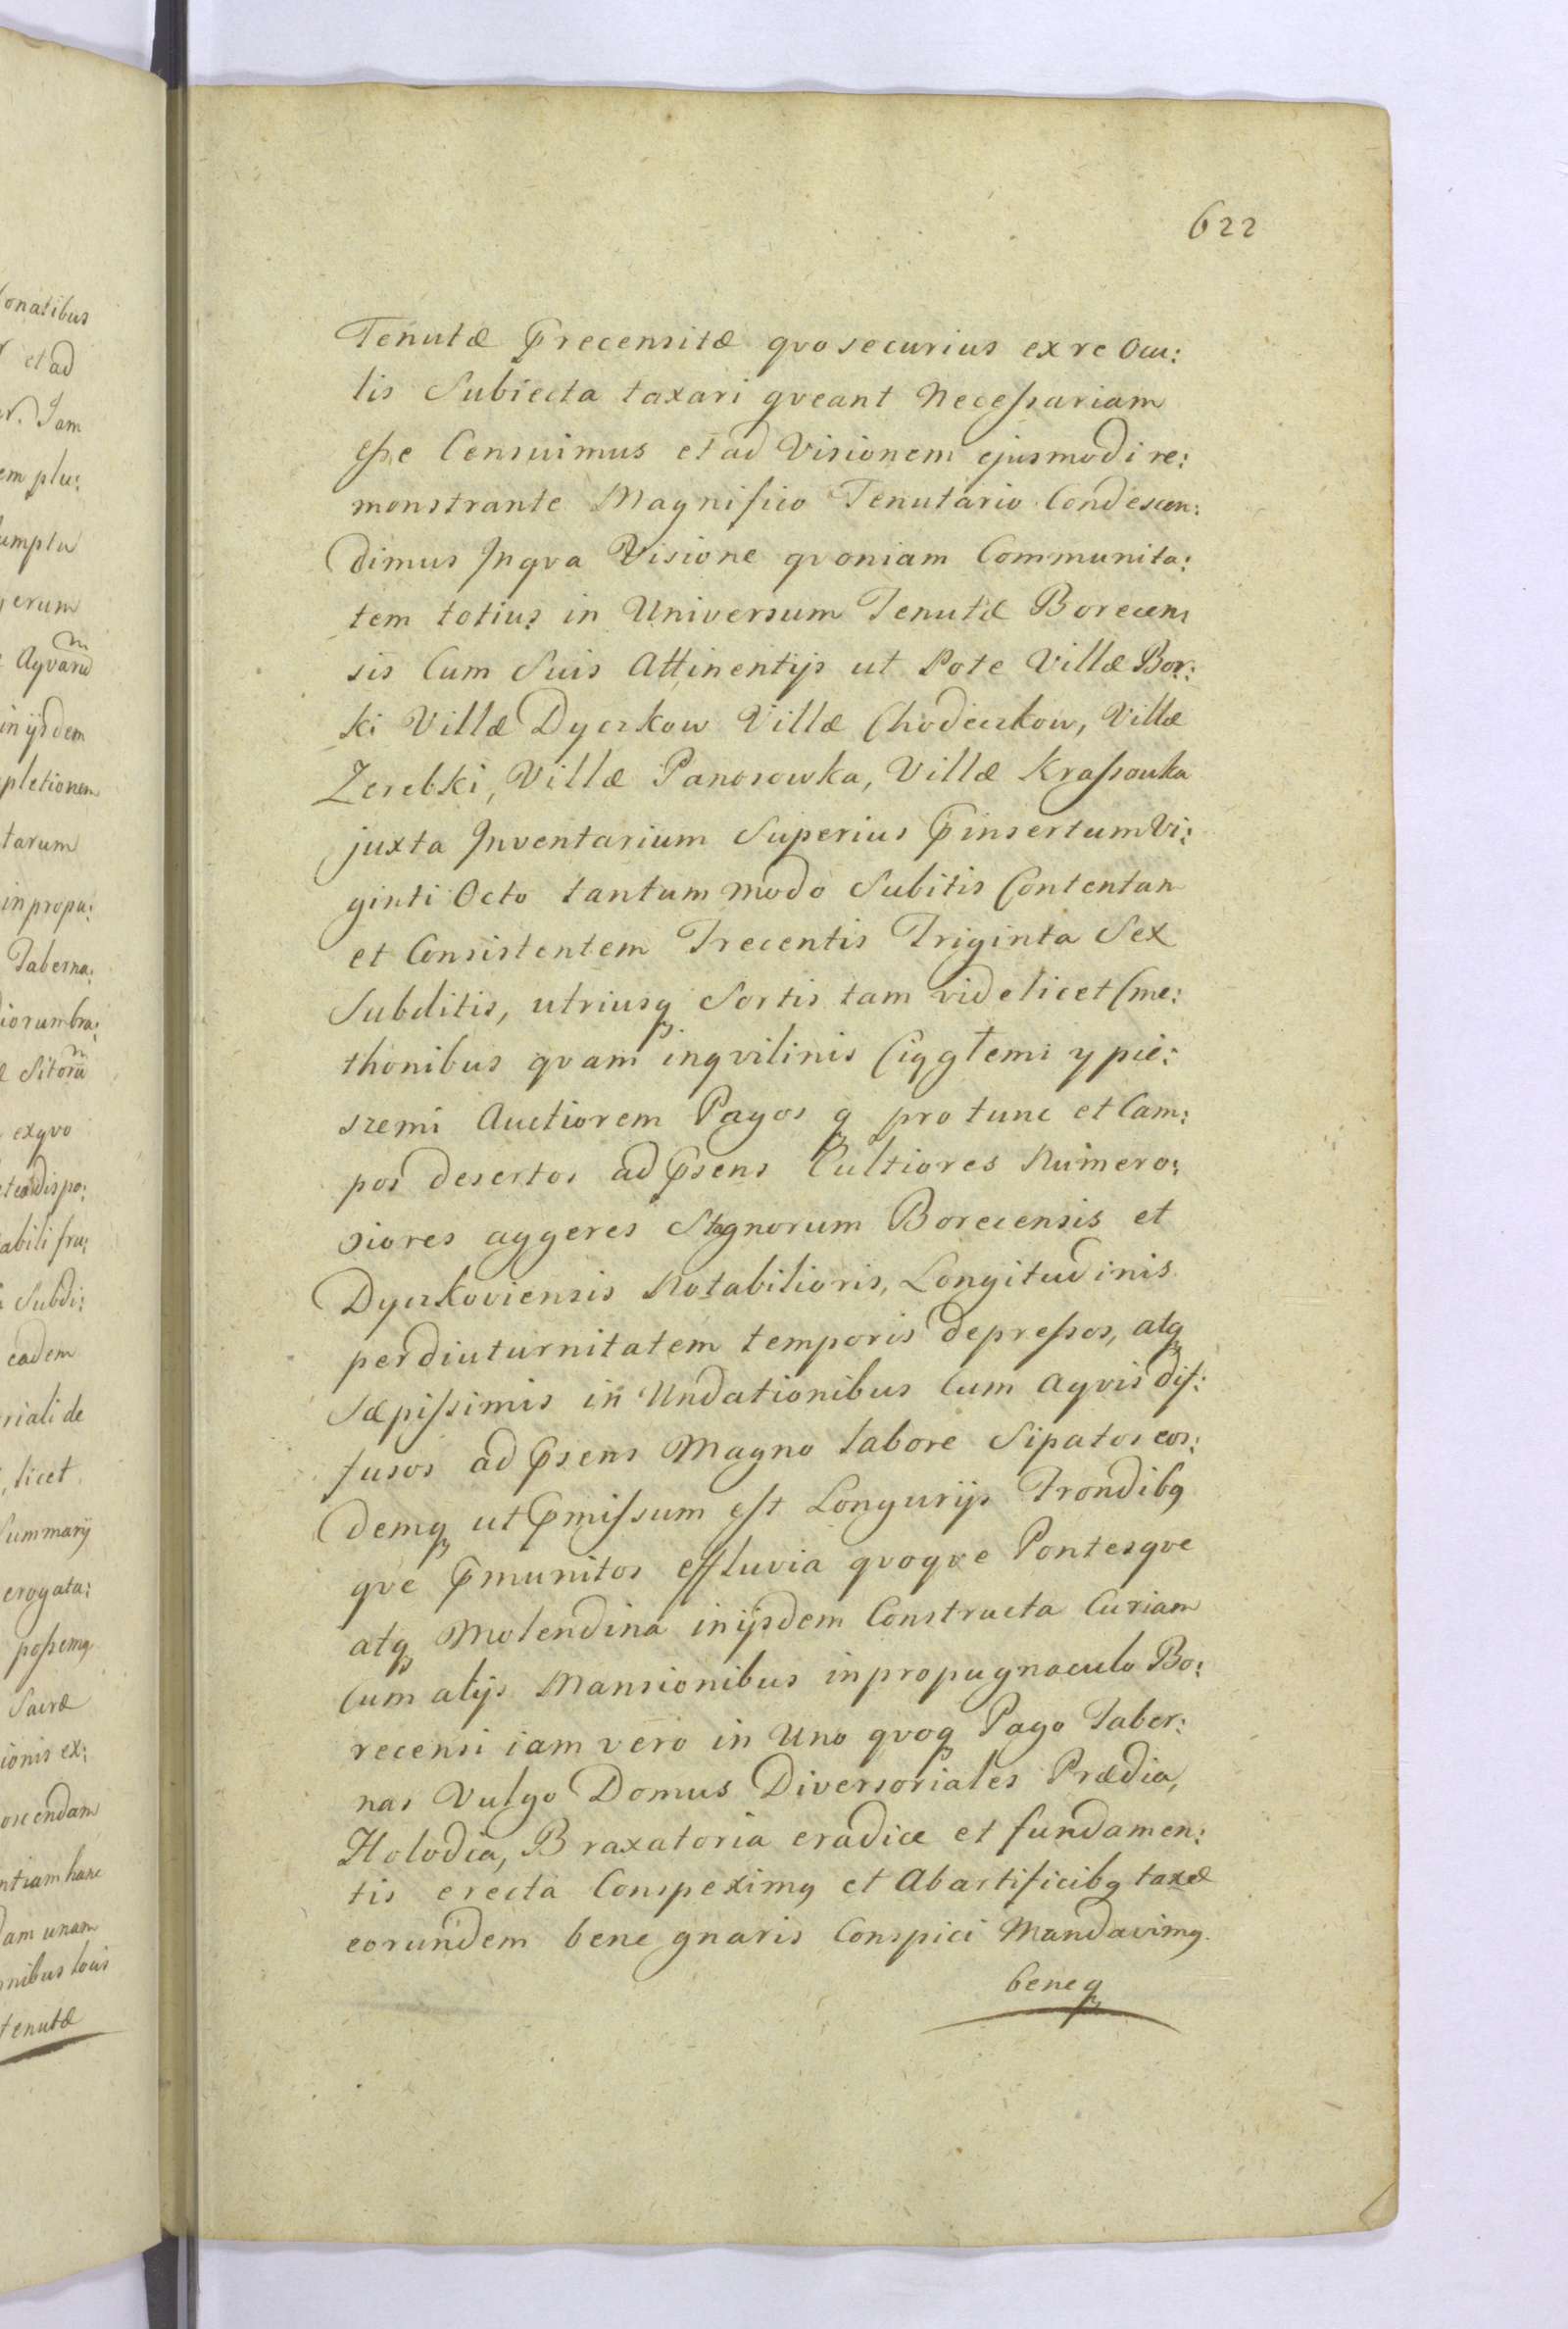 622
Tenutæ p̃recensitæ quo securius ex re Ocu:
lis Subiecta taxari queant Necessariam
esse Censuimus et ad Visionem ejusmodi re:
monstrante Magnifico Tenutario Condescen:
dimus Inqva Visione qvoniam Communita:
tem totius in Universum Tenutæ Borecen
sis Cum Suis Attinentijs ut Pote Villæ Bor:
ki Villæ Dyczkow Villæ Chodeczkow, Villæ
Zerebki, Villæ Panosowka, Villæ Krassowka
juxta Inventarium Superius p̃insertum Vi:
ginti Octo tantum modo Subitis Contentam
et Consistentem Trecentis Triginta Sex
Subditis, utriusq̃ Sortis tam videlicet Cme:
thonibus qvam inqvilinis Ciągłemi y pie:
szemi Auctiorem Pagos q̃ pro tunc et Cam:
pos desertos ad p̃sens Cultiores Numero:
siores aggeres Stagnorum Borecensis et
Dyczkoviensis Notabilioris, Longitudinis
per diuturnitatem temporis depressos, atq̃
Sæpissimis in Undationibus Cum Aqvis dif:
fusos ad p̃sens Magno labore Sipatos eos:
demq̃ ut p̃missum est Longurijs Frondibq
qve p̃munitos effluvia qvoqve Pontesqve
atq̃ Molendina in ijsdem Constructa Curiam
Cum alijs Mansionibus in propugnaculo Bo:
recensi iam vero in Uno qvoq̃ Pago Taber:
nas Vulgo Domus Diversoriales Prædia,
Holodia, Braxatoria eradice et fundamen:
tis erecta Conspeximq et Ab artificibq taxæ
eorundem bene gnaris Conspici Mandavimq.
beneq̃
onatibus
et ad
Jam
em plu:
umptu
gerum
Aqvarũ
in ijsdem
pletionem
tarum
in propu:
Taberna:
iorum bra:
Sitorũ
exqvo
dispo:
abili fru:
Subdi:
eadem
riali de
licet
Summarij
erogata:
possemq
Sacræ
ionis ex:
oscendam
ntiam hanc
dam unam
nibus locis
tenutæ